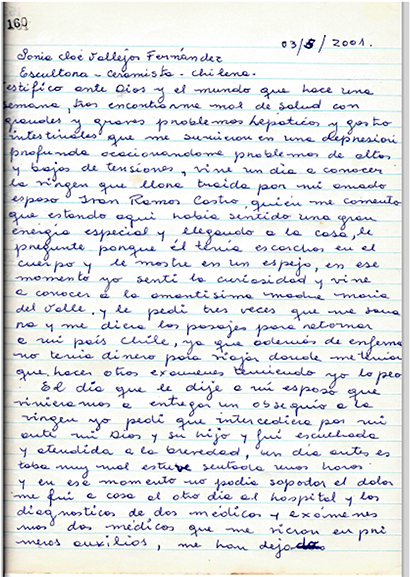 160
03/5/2001.
Sonia Cloé Vallejos Fernández
Escultora - Ceramista - Chilena.
estifico ante Dios y el mundo que hace una
semana, tras encontrarme mal de salud con
grandes y graves problemas hepaticos y gastro
intestinales que me sumieron en una depresion
profunda ocacionandome problemas de altos
y bajos de tensiones, vine un dia a conocer
la virgen que llora traida por mi amado
esposo Ivan Ramos Castro, quien me comento
que estando aqui habia sentido una gran
energia especial y llegando a la casa, le
pregunte porque él tenia escarchas en el
cuerpo y le mostre en un espejo, en ese
momento yo senti la curiosidad y vine
a conocer a la amantisima madre maria
del Valle, y le pedi tres veces que me sana
ra y me diera los pasajes para retornar
a mi pais Chile, ya que además de enferma
no tenia dinero para viajar donde me tenian
que hacer otros examenes teniendo yo lo peor
El dia que le dije a mi esposo que
vinieramos a entregar un obsequio a la
virgen yo pedi que intercediera por mi
ante mi Dios y su hijo y fui escuchada
y atendida a la brevedad, un dia antes es
taba muy mal estuve sentada unas horas
y en ese momento no podia sopodar el dolor
me fui a casa al otro dia al hospital y los
diagnosticos de dos medicos y exámenes
mas dos médicos que me vieron en pri
meros auxilios, me han dejado